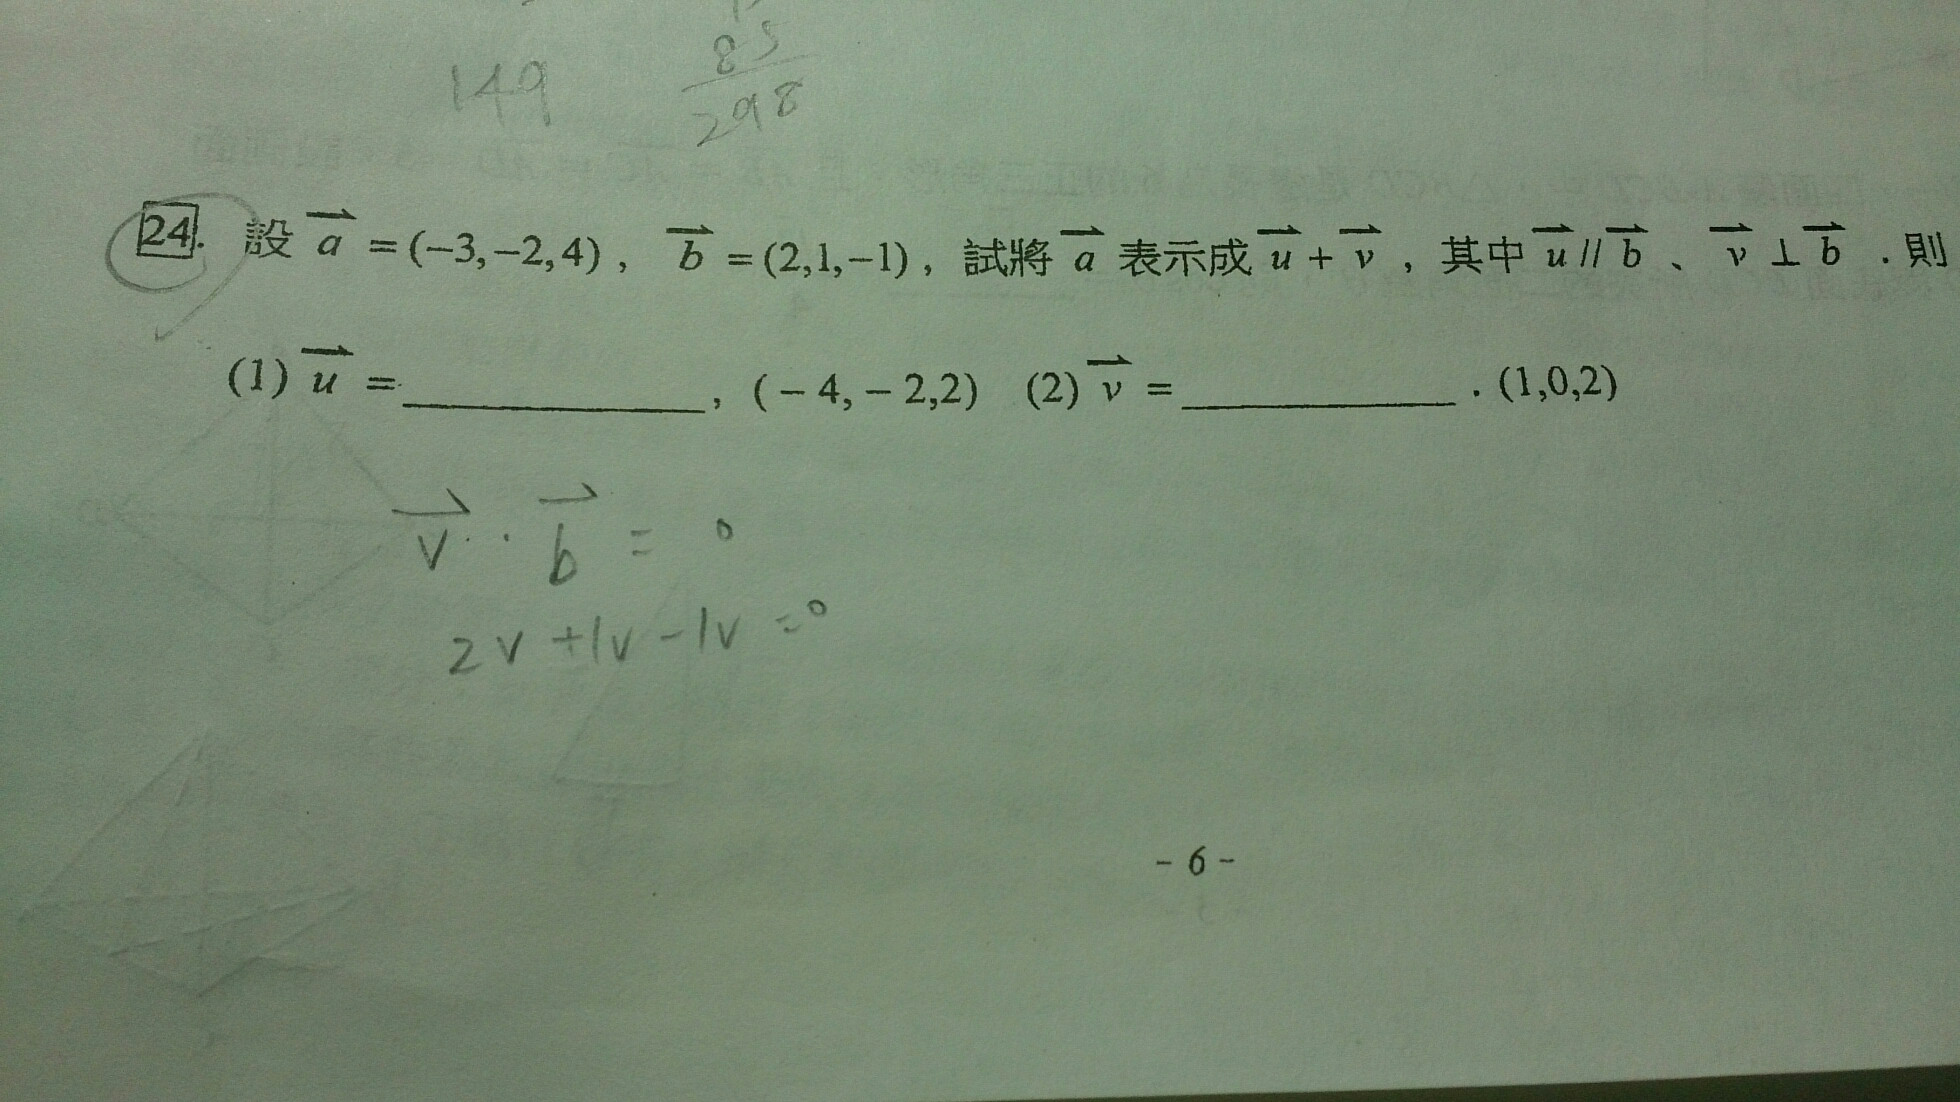 149
85
298
24. 設 a = (−3,−2,4), b = (2,1,−1), 試將 a 表示成 u + v , 其中 u // b 、 v ⊥ b . 則
(1) u = ____________, (−4,−2,2) (2) v = ____________. (1,0,2)
v · b = 0
2v + 1v − 1v = 0
- 6 -